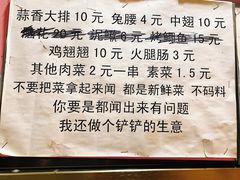 蒜香大排10元 兔腰4元 中翅10元
烤花20元 泥鳅6元 烤鲫鱼15元
鸡翅翅10元 火腿肠3元
其他肉菜2元一串 素菜1.5元
不要把菜拿起来闻 都是新鲜菜 不码料
你要是都闻出来有问题
我还做个铲铲的生意